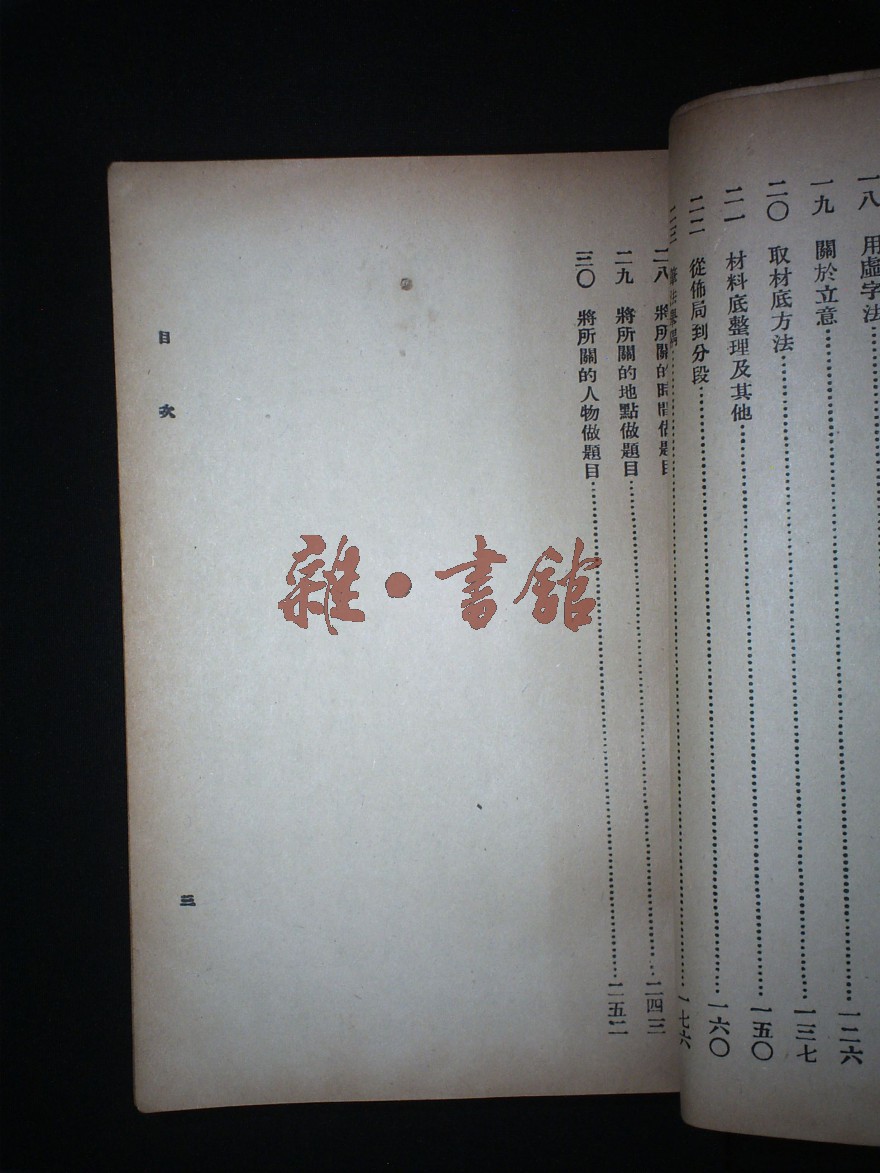 一八 用虛字法
一九 關於立意……一二六
二〇 取材底方法……一三七
二一 材料底整理及其他……一五〇
二二 從佈局到分段……一六〇
二三 ……一七六
二八 將所關的時間做題目
二九 將所關的地點做題目……二四三
三〇 將所關的人物做題目……二五二
目次
三
雜·書館